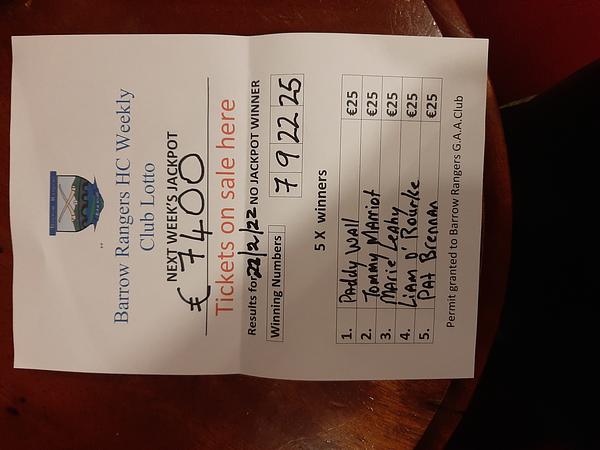 Barrow Rangers HC Weekly
Club Lotto
NEXT WEEK'S JACKPOT
€ 7400
Tickets on sale here
Results for 22/2/22 NO JACKPOT WINNER
Winning Numbers 7 9 22 25
5 X winners
1. Paddy Wall €25
2. Tommy Marriot €25
3. Marie Leahy €25
4. Liam O Rourke €25
5. Pat Brennan €25
Permit granted to Barrow Rangers G.A.A.Club